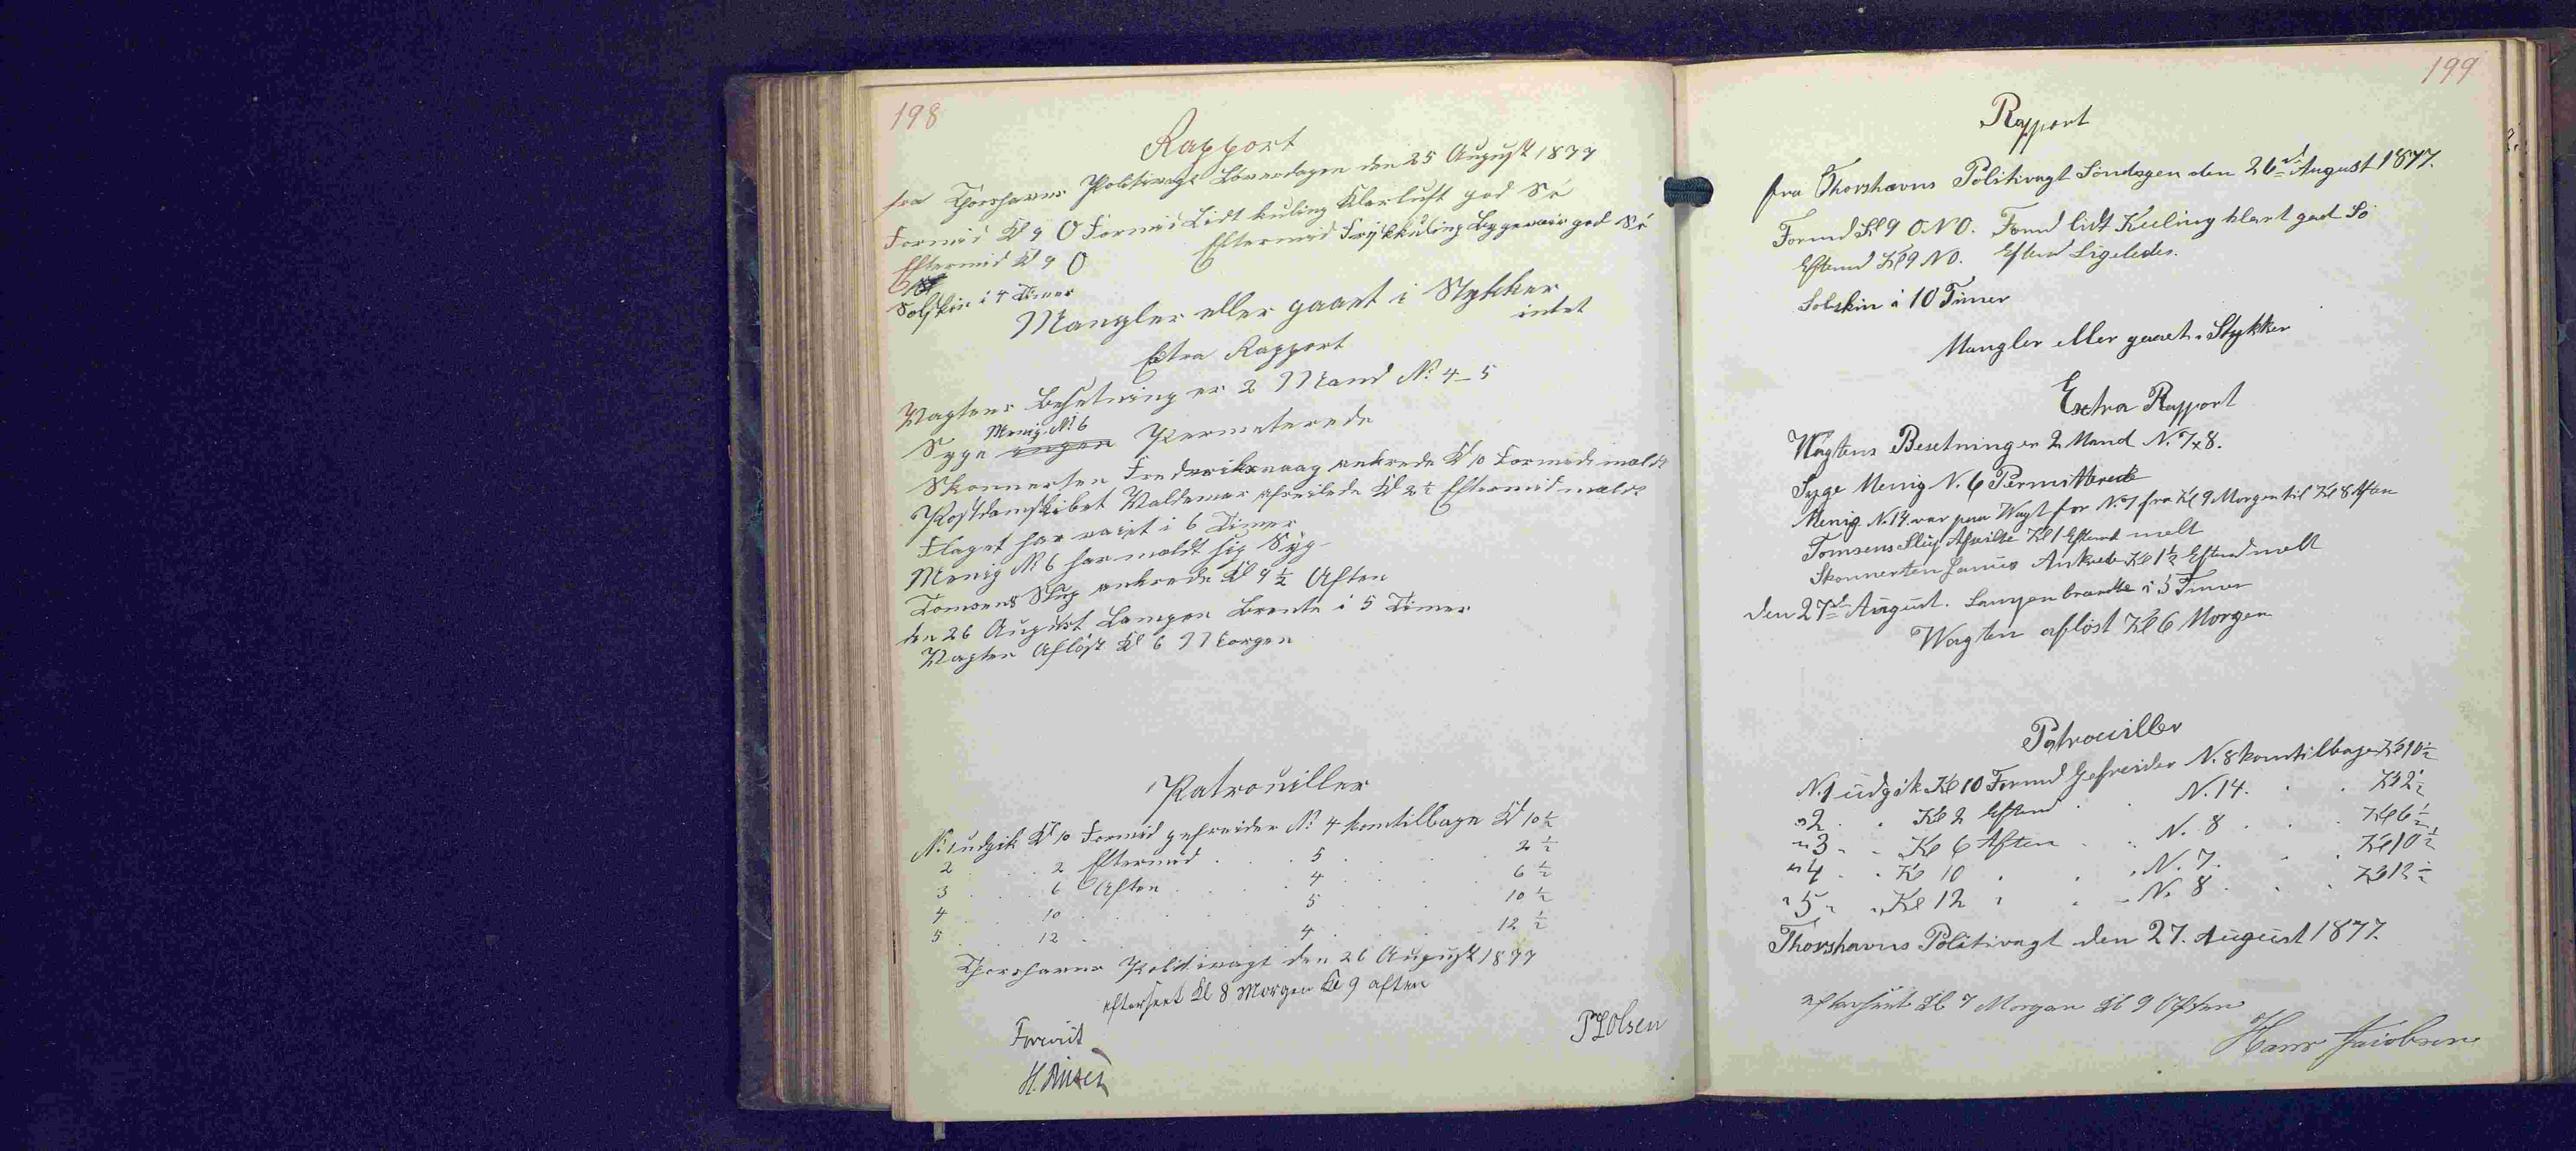 198
Rapport
fra Thorshavns Politivagt Löverdagen den 25 August 1877
Formid Kl 9 O Formid Lidt kuling Klarluft god Sö
Eftermid Kl 9 O Eftermid Friskkuling Byggeveir god Sö
Solskin i 4 Timer
Mangler eller gaaet i Stykker
intet
Extra Rapport
Vagtens Besetning er 2 Mand No 4-5
Menig No 6
Syge ingen Permeterede
Skonnerten Frederiksvaag ankrede Kl 10 Formid meldt
Postdamskibet Valdemar afseilede Kl 2½ Eftermid meldt
Flaget har vaiet i 6 Timer
Menig No 6 har meldt sig Syg
Tomsens Slup ankrede Kl 9½ Aften
den 26 August Lampen Brente i 5 Timer
Vagten Aflöst Kl 6 Morgen
Patrouiller
No 1 udgik Kl 10 Formid gefreider No 4 komtilbage Kl 10½
2 . . 2 Eftermid . . . 5 . . . 2½
3 . . 6 Aften . . . 4 . . . 6½
4 . . 10 . . . 5 . . . 10½
5 . . 12 . . . 4 . . . 12½
Thorshavns Politivagt den 26 August 1877
efterseet Kl 8 Morgen Kl 9 aften
Forevist
P Olsen
199
Rapport
fra Thorshavns Politivagt Söndagen den 26de August 1877.
Formd Kl 9 ONO. Formd lidt Kuling klart god Sö
Eftemd Kl 9 NO. Eftemd Ligeledes.
Solskin i 10 Timer
Mangler eller gaaet i Stykker
Extra Rapport
Wagtens Besetning er 2 Mand N. 7 x 8.
Syge Menig N. 6 Permitterede
Menig N. 14 var paa Wagt for No 7 fra Kl 9 Morgen til Kl 8 Aften
Tomsens Slup Afseilte Kl 1 Eftemd melt
Skonnerten Janus Ankrede Kl 1½ Eftemd melt
den 27de August. Lampen brændte i 5 Timer
Wagten aflöst Kl 6 Morgen
Patrouiller
N. 1 udgik Kl 10 Formd Gefreider N. 8 komtilbage Kl 10½
" 2 . . Kl 2 Eftemd . . N. 14. . . Kl 2½
" 3 . . Kl 6 Aften . . N. 8 . . . Kl 6½
" 4 . . Kl 10 . . . N. 7. . . Kl 10½
" 5 " " Kl 12 . . . N. 8 . . . Kl 12½
Thorshavns Politivagt den 27. August 1877.
efterseet Kl 7 Morgen Kl 9 Aften
Hans Jacobsen